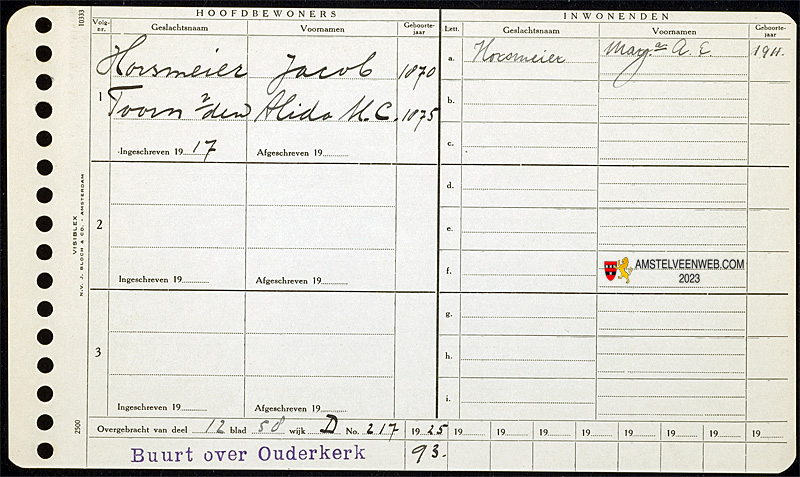 HOOFDBEWONERS INWONENDEN
10333
Volg-nr. Geslachtsnaam Voornamen Geboorte-jaar Lett. Geslachtsnaam Voornamen Geboorte-jaar
Horsmeier Jacob 1870 a. Horsmeier Marg.a A. E. 1911.
1 Toorn v/den Alida M. C. 1875 b.
Ingeschreven 19 17 Afgeschreven 19 c.
d.
2 e.
Ingeschreven 19 Afgeschreven 19 f.
AMSTELVEENWEB.COM
2023
g.
3 h.
Ingeschreven 19 Afgeschreven 19 i.
Overgebracht van deel 12 blad 58 wijk D No. 217 19 25 19 19 19 19 19 19 19 19
Buurt over Ouderkerk 93.
VISIBLEX
N.V. J. BLOCH & CO. - AMSTERDAM
2500